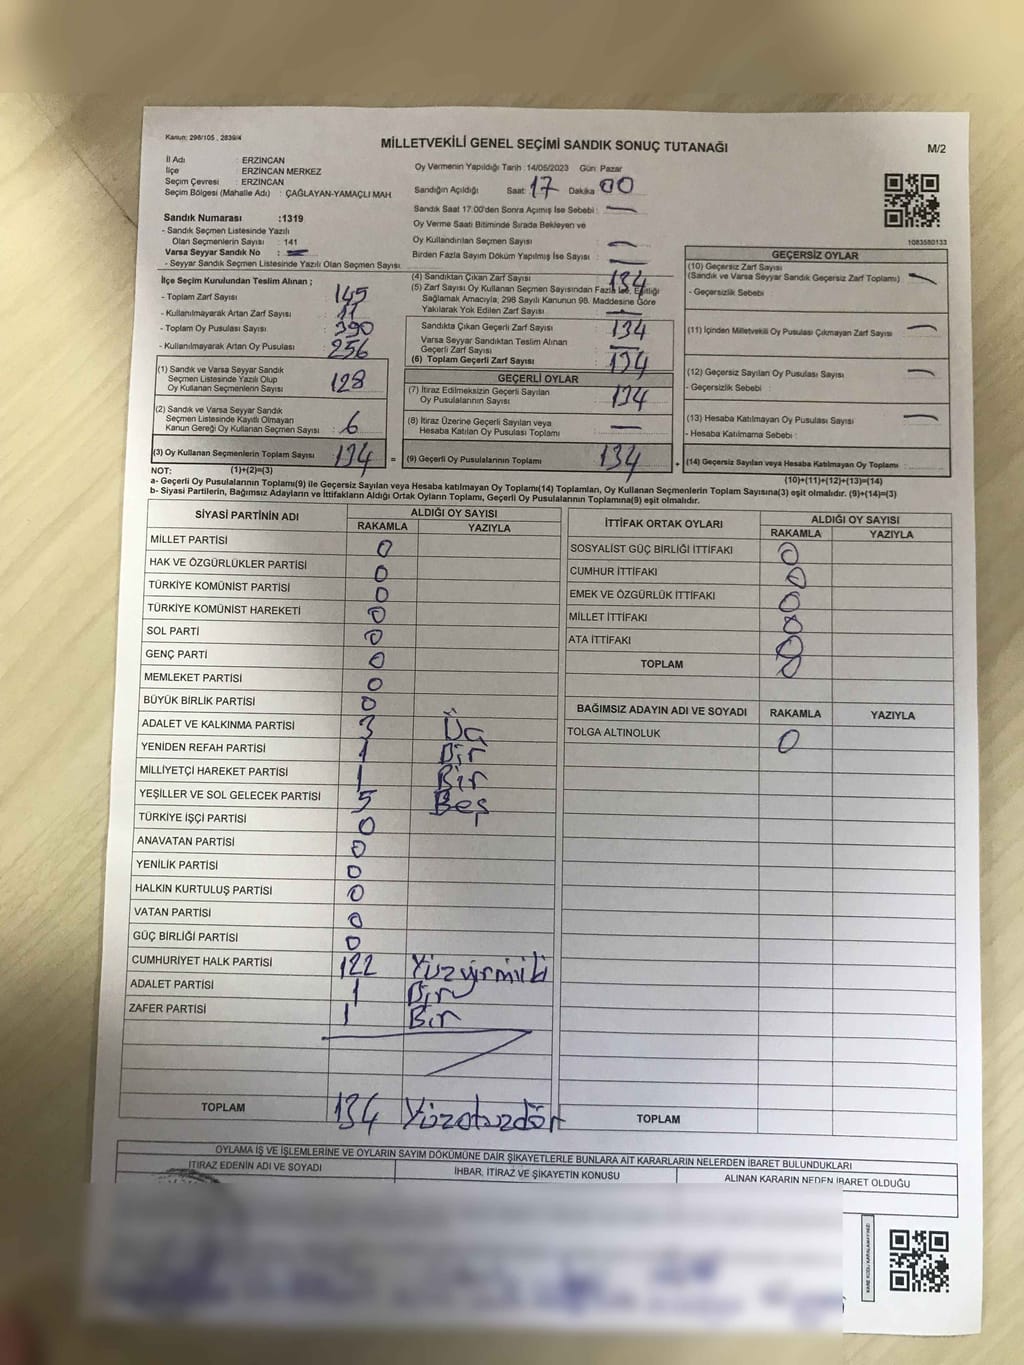 Kanun: 298/105 , 2839/4
MİLLETVEKİLİ GENEL SEÇİMİ SANDIK SONUÇ TUTANAĞI
M/2
İl Adı : ERZİNCAN
İlçe : ERZİNCAN MERKEZ
Seçim Çevresi : ERZİNCAN
Seçim Bölgesi (Mahalle Adı) : ÇAĞLAYAN-YAMAÇLI MAH.
Sandık Numarası :1319
- Sandık Seçmen Listesinde Yazılı
Olan Seçmenlerin Sayısı : 141
Varsa Seyyar Sandık No :
- Seyyar Sandık Seçmen Listesinde Yazılı Olan Seçmen Sayısı:
Oy Vermenin Yapıldığı Tarih :14/05/2023 Gün: Pazar
Sandığın Açıldığı Saat: 17 Dakika 00
Sandık Saat 17:00'den Sonra Açımış İse Sebebi : —
Oy Verme Saati Bitiminde Sırada Bekleyen ve
Oy Kullandırılan Seçmen Sayısı —
Birden Fazla Sayım Döküm Yapılmış İse Sayısı : —
1083580133
İlçe Seçim Kurulundan Teslim Alınan ;
- Toplam Zarf Sayısı : 145
- Kullanılmayarak Artan Zarf Sayısı : 11
- Toplam Oy Pusulası Sayısı : 390
- Kullanılmayarak Artan Oy Pusulası : 256
(1) Sandık ve Varsa Seyyar Sandık
Seçmen Listesinde Yazılı Olup
Oy Kullanan Seçmenlerin Sayısı : 128
(2) Sandık ve Varsa Seyyar Sandık
Seçmen Listesinde Kayıtlı Olmayan
Kanun Gereği Oy Kullanan Seçmen Sayısı : 6
(3) Oy Kullanan Seçmenlerin Toplam Sayısı 134 =
(4) Sandıktan Çıkan Zarf Sayısı 134
(5) Zarf Sayısı Oy Kullanan Seçmen Sayısından Fazla İse, Eşitliği
Sağlamak Amacıyla, 298 Sayılı Kanunun 98. Maddesine Göre
Yakılarak Yok Edilen Zarf Sayısı : —
Sandıkta Çıkan Geçerli Zarf Sayısı : 134
Varsa Seyyar Sandıktan Teslim Alınan
Geçerli Zarf Sayısı : —
(6) Toplam Geçerli Zarf Sayısı : 134
GEÇERLİ OYLAR
(7) İtiraz Edilmeksizin Geçerli Sayılan
Oy Pusulalarının Sayısı : 134
(8) İtiraz Üzerine Geçerli Sayılan veya
Hesaba Katılan Oy Pusulası Toplamı : —
(9) Geçerli Oy Pusulalarının Toplamı 134 +
GEÇERSİZ OYLAR
(10) Geçersiz Zarf Sayısı
(Sandık ve Varsa Seyyar Sandık Geçersiz Zarf Toplamı) : —
- Geçersizlik Sebebi
(11) İçinden Milletvekili Oy Pusulası Çıkmayan Zarf Sayısı : —
(12) Geçersiz Sayılan Oy Pusulası Sayısı : —
- Geçersizlik Sebebi :
(13) Hesaba Katılmayan Oy Pusulası Sayısı : —
- Hesaba Katılmama Sebebi :
(14) Geçersiz Sayılan veya Hesaba Katılmayan Oy Toplamı
NOT: (1)+(2)=(3)
(10)+(11)+(12)+(13)=(14)
a- Geçerli Oy Pusulalarının Toplamı(9) ile Geçersiz Sayılan veya Hesaba Katılmayan Oy Toplamı(14) Toplamları, Oy Kullanan Seçmenlerin Toplam Sayısına(3) eşit olmalıdır. (9)+(14)=(3)
b- Siyasi Partilerin, Bağımsız Adayların ve İttifakların Aldığı Ortak Oyların Toplamı, Geçerli Oy Pusulalarının Toplamına(9) eşit olmalıdır.
SİYASİ PARTİNİN ADI ALDIĞI OY SAYISI
RAKAMLA YAZIYLA
MİLLET PARTİSİ 0
HAK VE ÖZGÜRLÜKLER PARTİSİ 0
TÜRKİYE KOMÜNİST PARTİSİ 0
TÜRKİYE KOMÜNİST HAREKETİ 0
SOL PARTİ 0
GENÇ PARTİ 0
MEMLEKET PARTİSİ 0
BÜYÜK BİRLİK PARTİSİ 0
ADALET VE KALKINMA PARTİSİ 3 Üç
YENİDEN REFAH PARTİSİ 1 Bir
MİLLİYETÇİ HAREKET PARTİSİ 1 Bir
YEŞİLLER VE SOL GELECEK PARTİSİ 5 Beş
TÜRKİYE İŞÇİ PARTİSİ 0
ANAVATAN PARTİSİ 0
YENİLİK PARTİSİ 0
HALKIN KURTULUŞ PARTİSİ 0
VATAN PARTİSİ 0
GÜÇ BİRLİĞİ PARTİSİ 0
CUMHURİYET HALK PARTİSİ 122
ADALET PARTİSİ 1 Bir
ZAFER PARTİSİ 1 Bir
TOPLAM 134
İTTİFAK ORTAK OYLARI ALDIĞI OY SAYISI
RAKAMLA YAZIYLA
SOSYALİST GÜÇ BİRLİĞİ İTTİFAKI 0
CUMHUR İTTİFAKI 0
EMEK VE ÖZGÜRLÜK İTTİFAKI 0
MİLLET İTTİFAKI 0
ATA İTTİFAKI 0
TOPLAM 0
BAĞIMSIZ ADAYIN ADI VE SOYADI RAKAMLA YAZIYLA
TOLGA ALTINOLUK 0
TOPLAM
OYLAMA İŞ VE İŞLEMLERİNE VE OYLARIN SAYIM DÖKÜMÜNE DAİR ŞİKAYETLERLE BUNLARA AİT KARARLARIN NELERDEN İBARET BULUNDUKLARI
İTİRAZ EDENİN ADI VE SOYADI İHBAR, İTİRAZ VE ŞİKAYETİN KONUSU ALINAN KARARIN NEDEN İBARET OLDUĞU